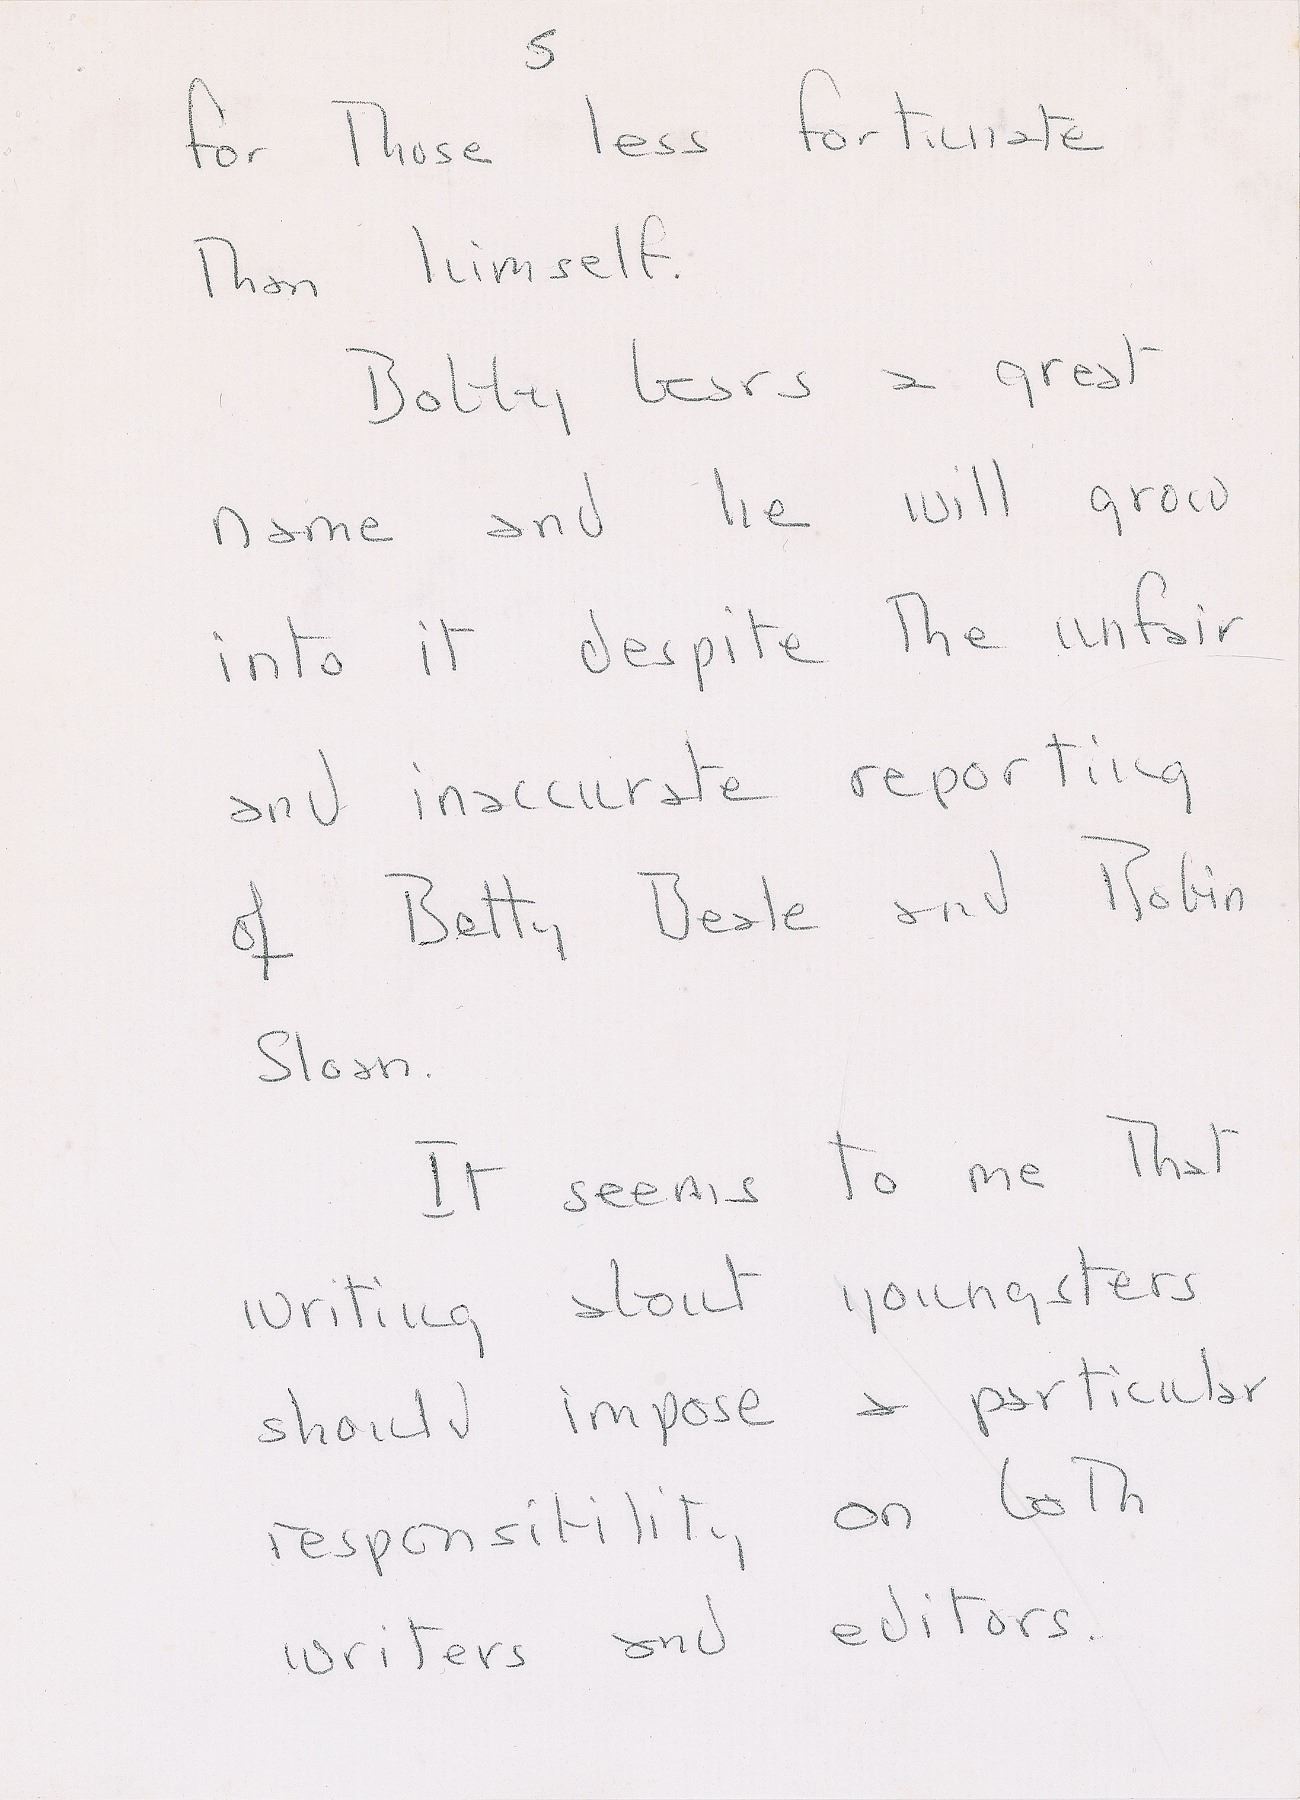 5
for Those less fortunate
Than himself.
Bobby bears a great
name and he will grow
into it despite The unfair
and inaccurate reporting
of Betty Beale and Robin
Sloan.
It seems to me That
writing about youngsters
should impose a particular
responsibility on both
writers and editors.